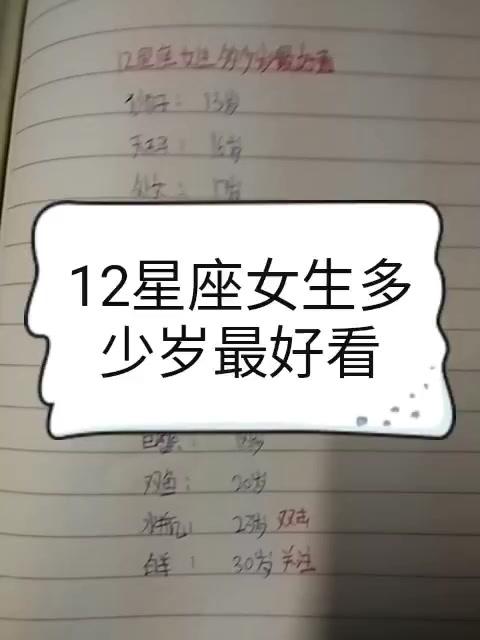 12星座女生多少岁最好看
狮子：13岁
天平：16岁
处女：17岁
12星座女生多
少岁最好看
巨蟹：
双鱼：20岁
水瓶：23岁 双击
白羊：30岁 关注